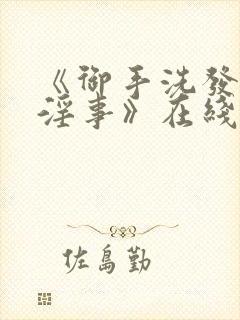 《御手洗發
淫事》在綫
佐島勤